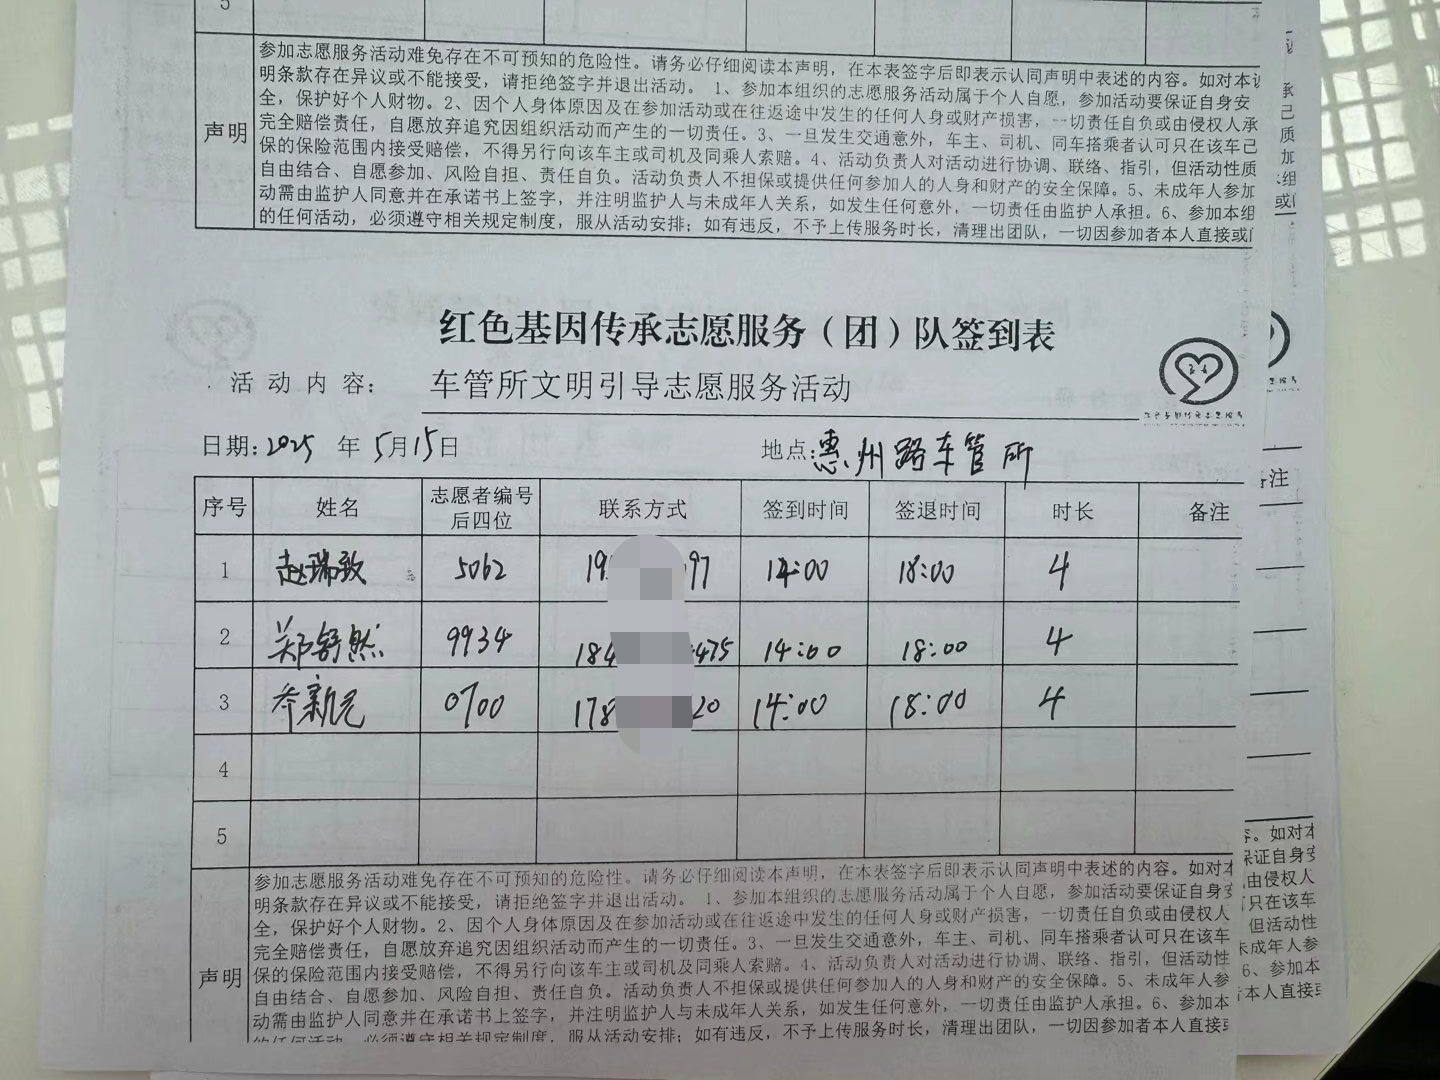 5
声明
参加志愿服务活动难免存在不可预知的危险性。请务必仔细阅读本声明，在本表签字后即表示认同声明中表述的内容。如对本
明条款存在异议或不能接受，请拒绝签字并退出活动。 1、参加本组织的志愿服务活动属于个人自愿，参加活动要保证自身安
全，保护好个人财物。2、因个人身体原因及在参加活动或在往返途中发生的任何人身或财产损害，一切责任自负或由侵权人承
完全赔偿责任，自愿放弃追究因组织活动而产生的一切责任。3、一旦发生交通意外，车主、司机、同车搭乘者认可只在该车己
保的保险范围内接受赔偿，不得另行向该车主或司机及同乘人索赔。4、活动负责人对活动进行协调、联络、指引，但活动性质
自由结合、自愿参加、风险自担、责任自负。活动负责人不担保或提供任何参加人的人身和财产的安全保障。5、未成年人参加
动需由监护人同意并在承诺书上签字，并注明监护人与未成年人关系，如发生任何意外，一切责任由监护人承担。6、参加本组
的任何活动，必须遵守相关规定制度，服从活动安排；如有违反，不予上传服务时长，清理出团队，一切因参加者本人直接或
红色基因传承志愿服务（团）队签到表
活动内容： 车管所文明引导志愿服务活动
日期：2025 年 5月15日 地点：惠州路车管所
序号 姓名 志愿者编号后四位 联系方式 签到时间 签退时间 时长 备注
1 赵瑞敦 5062 19 97 14:00 18:00 4
2 郑舒然 9934 184 475 14:00 18:00 4
3 岑新元 0700 178 20 14:00 18:00 4
4
5
声明
参加志愿服务活动难免存在不可预知的危险性。请务必仔细阅读本声明，在本表签字后即表示认同声明中表述的内容。如对本
明条款存在异议或不能接受，请拒绝签字并退出活动。 1、参加本组织的志愿服务活动属于个人自愿，参加活动要保证自身安
全，保护好个人财物。2、因个人身体原因及在参加活动或在往返途中发生的任何人身或财产损害，一切责任自负或由侵权人
完全赔偿责任，自愿放弃追究因组织活动而产生的一切责任。3、一旦发生交通意外，车主、司机、同车搭乘者认可只在该车
保的保险范围内接受赔偿，不得另行向该车主或司机及同乘人索赔。4、活动负责人对活动进行协调、联络、指引，但活动性
自由结合、自愿参加、风险自担、责任自负。活动负责人不担保或提供任何参加人的人身和财产的安全保障。5、未成年人参
动需由监护人同意并在承诺书上签字，并注明监护人与未成年人关系，如发生任何意外，一切责任由监护人承担。6、参加本
的任何活动，必须遵守相关规定制度，服从活动安排；如有违反，不予上传服务时长，清理出团队，一切因参加者本人直接
注
如对本
保证自身安
由侵权人
只在该车
但活动性
未成年人参
6、参加本
本人直接